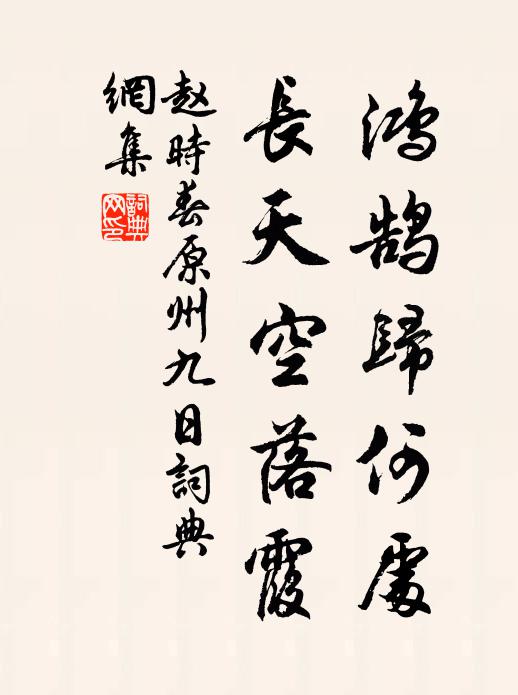 鸿鹄歸何處
長天空落霞
赵時春原州九日詞典
網集
詞典
网印